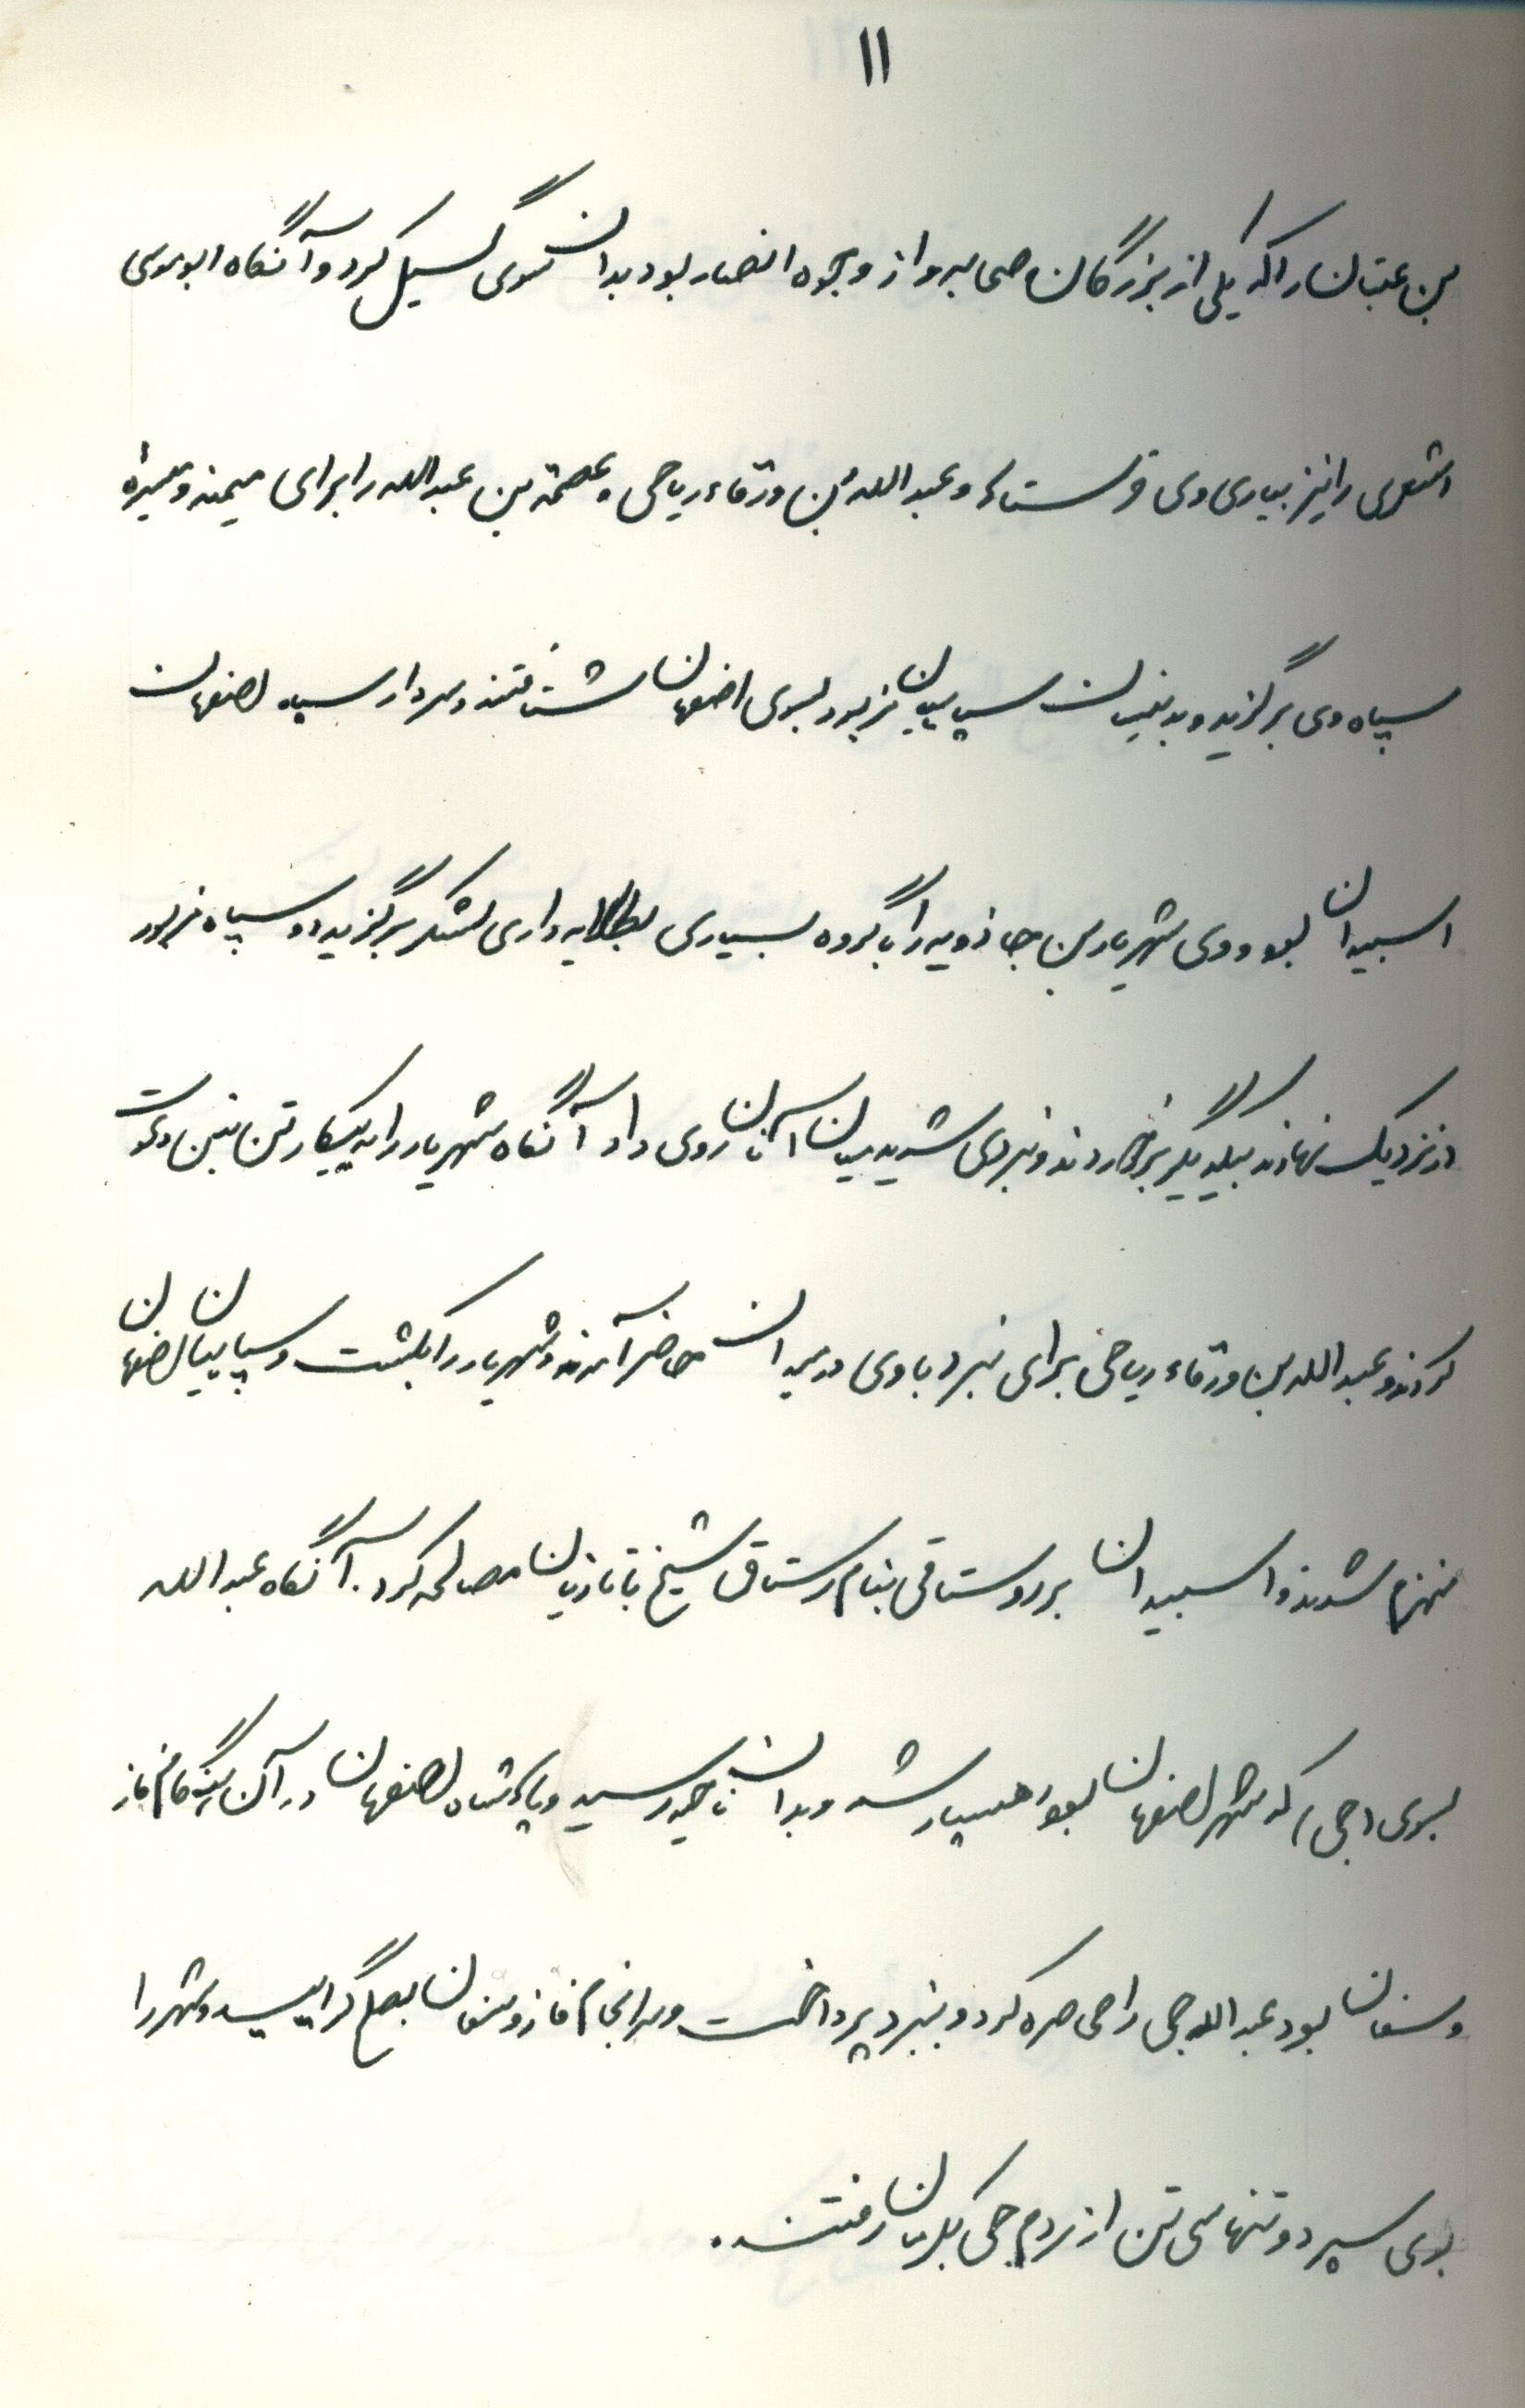 ۱۱
بن عتبان را که یکی از بزرگان صحابه و از وجوه انصار بود بدان سوی گسیل کرد و آنگاه ابوموسی
اشعری را نیز بیاری وی فرستاد و عبدالله بن ورقاء ریاحی و عصمة بن عبدالله را برای میمنه و میسره
سپاه وی برگزید و بدینسان سپاهیان مزبور بسوی اصفهان شتافتند و سردار سپاه اصفهان
اسبیدان بود و وی شهریار بن جاذویه را با گروه بسیاری بطلایه داری لشکر برگزید دو سپاه مزبور
در نزدیک نهاوند بیکدیگر برخوردند و نبردی شدید میان آنان روی داد آنگاه شهریار را به پیکار تن بتن دعوت
کردند و عبدالله بن ورقاء ریاحی برای نبرد با وی در میدان حاضر آمد و شهریار را بکشت و سپاهیان اصفهان
منهزم شدند و اسبیدان بر روستاقی بنام رستاق شیخ با تازیان مصالحه کرد. آنگاه عبدالله
بسوی (جی) که شهر اصفهان بود رهسپار شد و بدان ناحیه رسید و پادشاه اصفهان در آن هنگام فاز
وسفان بود عبدالله جی را محاصره کرد و بنبرد پرداخت و سرانجام فاز وسفان بصلح گرایید و شهر را
بوی سپرد و تنها سی تن از مردم جی بکرمان رفتند.